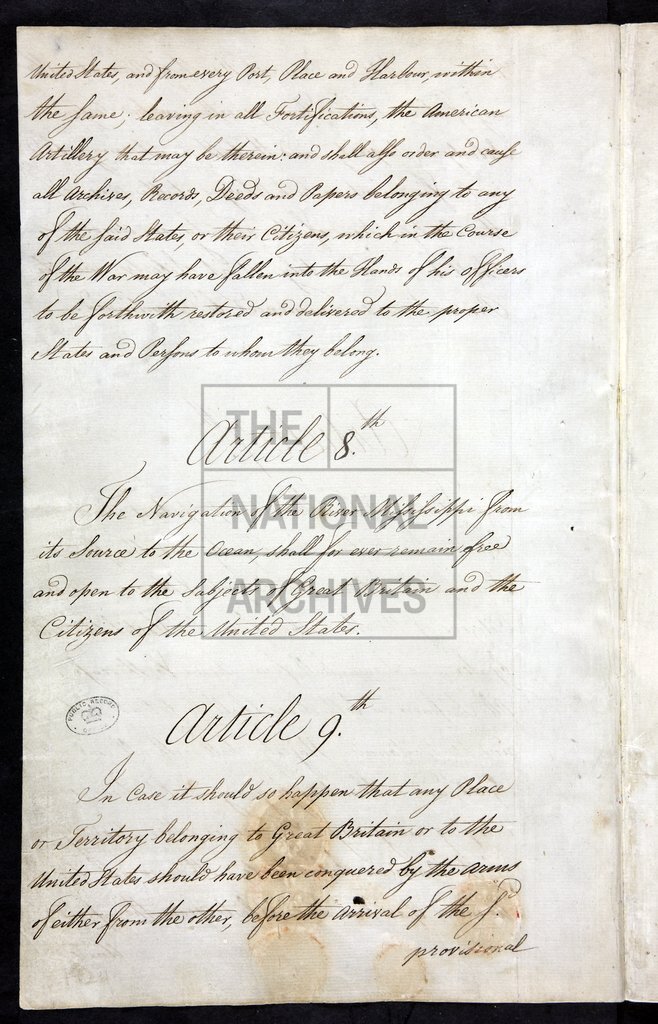 United States, and from every Port, Place and Harbour, within
the same; leaving in all Fortifications, the American
Artillery that may be therein: and shall also order and cause
all Archives, Records, Deeds and Papers belonging to any
of the said States, or their Citizens, which in the Course
of the War may have fallen into the Hands of his Officers
to be forthwith restored and delivered to the proper
States and Persons to whom they belong.
Article 8.th
The Navigation of the River Mississippi from
its Source to the Ocean, shall for ever remain free
and open to the Subjects of Great Britain and the
Citizens of the United States.
Article 9.th
In Case it should so happen that any Place
or Territory belonging to Great Britain or to the
United States should have been conquered by the Arms
of either from the other, before the Arrival of the s.d
provisional
THE
NATIONAL
ARCHIVES
PUBLIC RECORD